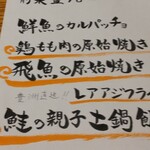 鮮魚のカルパッチョ
鶏もも肉の原始焼き
飛魚の原始焼き
レアアジフライ
鮭の親子土鍋飯